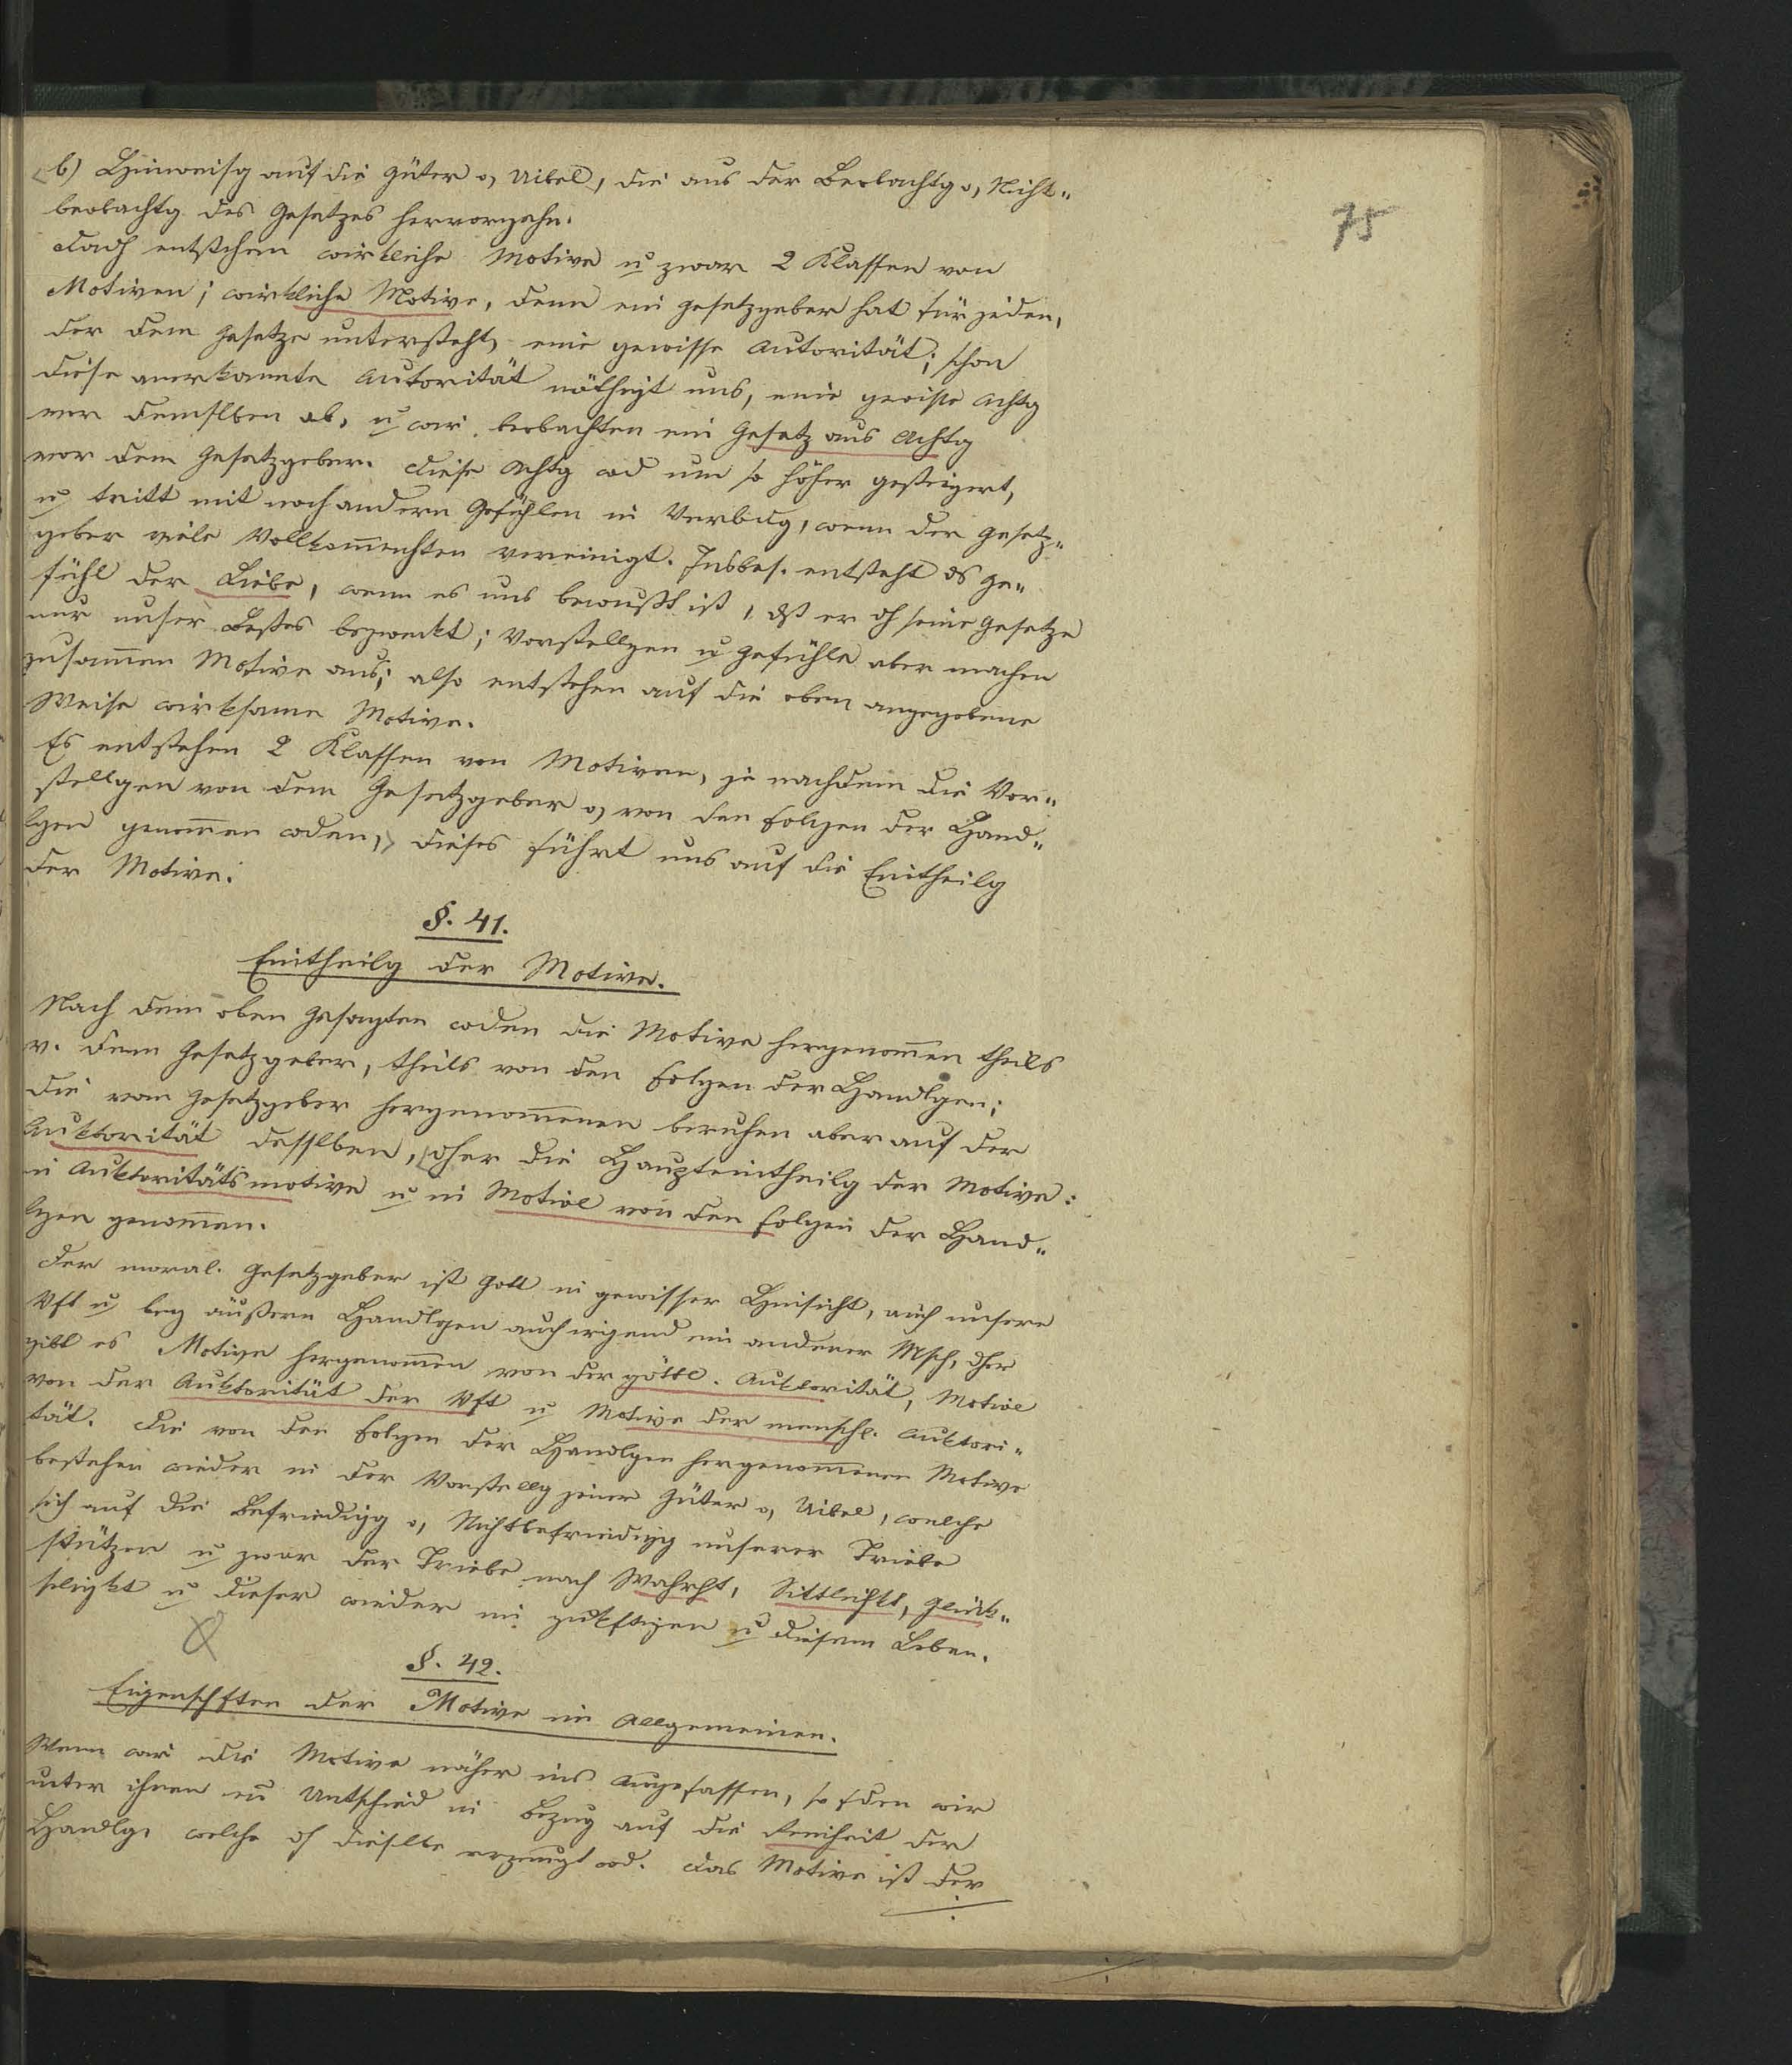 75
b) Hinweisg auf die Güter o, Uibel, die aus der Beobachtg o, Nicht-
beobachtg des Gesetzes hervorgehn.
Dadh entstehen wirkliche Motive u zwar 2 Klassen von
Motiven; wirkliche Motive, denn ein Gesetzgeber hat für jeden,
der dem Gesetze untersteht, eine gewisse Autorität; schon
diese anerkannte Autorität nöthigt uns, eine gewisse Achtg
vor demslben ab, u wir beobachten ein Gesetz aus Achtg
vor dem Gesetzgeber. Diese Achtg wd um so höher gesteigert,
u tritt mit noch andern Gefühlen in Verbidg, wenn der Gesetz-
geber viele Vollkom̄enhten vereinigt. Insbes. entsteht ds Ge-
fühl der Liebe, wenn es uns bewußt ist, dß er dh seine Gesetze
nur unser Bestes bezweckt; Vorstellgen u Gefühle aber machen
zusam̄en Motive aus; also entstehen auf die oben angegebene
Weise wirksame Motive.
Es entstehen 2 Klassen von Motiven, je nachdem die Vor-
stellgen von dem Gesetzgeber o, von den Folgen der Hand-
lgen genom̄en wden, dieses führt uns auf die Eintheilg
der Motive.
§. 41.
Eintheilg der Motive.
Nach dem oben Gesagten wden die Motive hergenom̄en theils
v. dem Gesetzgeber, theils von den Folgen der Handlgen;
die vom Gesetzgeber hergenom̄enen beruhen aber auf der
Auktorität desslben, dher die Haupteintheilg der Motive:
in Auktoritätsmotive u in Motive von den Folgen der Hand-
lgen genom̄en.
Der moral. Gesetzgeber ist Gott in gewisser Hinsicht, auch unsere
Vft u bey äußern Handlgen auch irgend ein anderer Msch, dher
gibt es Motive hergenom̄en von der göttl. Auktorität, Motive
von der Auktorität der Vft u Motive der menschl. Auktori-
tät. Die von den Folgen der Handlgen hergenom̄enen Motive
bestehen wieder in der Vorstellg jener Güter o, Uibel, welche
sich auf die Befriedigg o, Nichtbefriedigg unserer Triebe
stützen u zwar der Triebe nach Wahrht, Sittlichkt, Glück-
seligkt u dieser wieder im zukftigen u diesem Leben.
§. 42.
Eigenschften der Motive im Allgemeinen.
Wenn wir die Motive näher ins Auge fassen, so fden wir
unter ihnen ein Untschied in Bezug auf die Freiheit der
Handlg, welche dh dieselbe erzeugt wd. Das Motive ist der